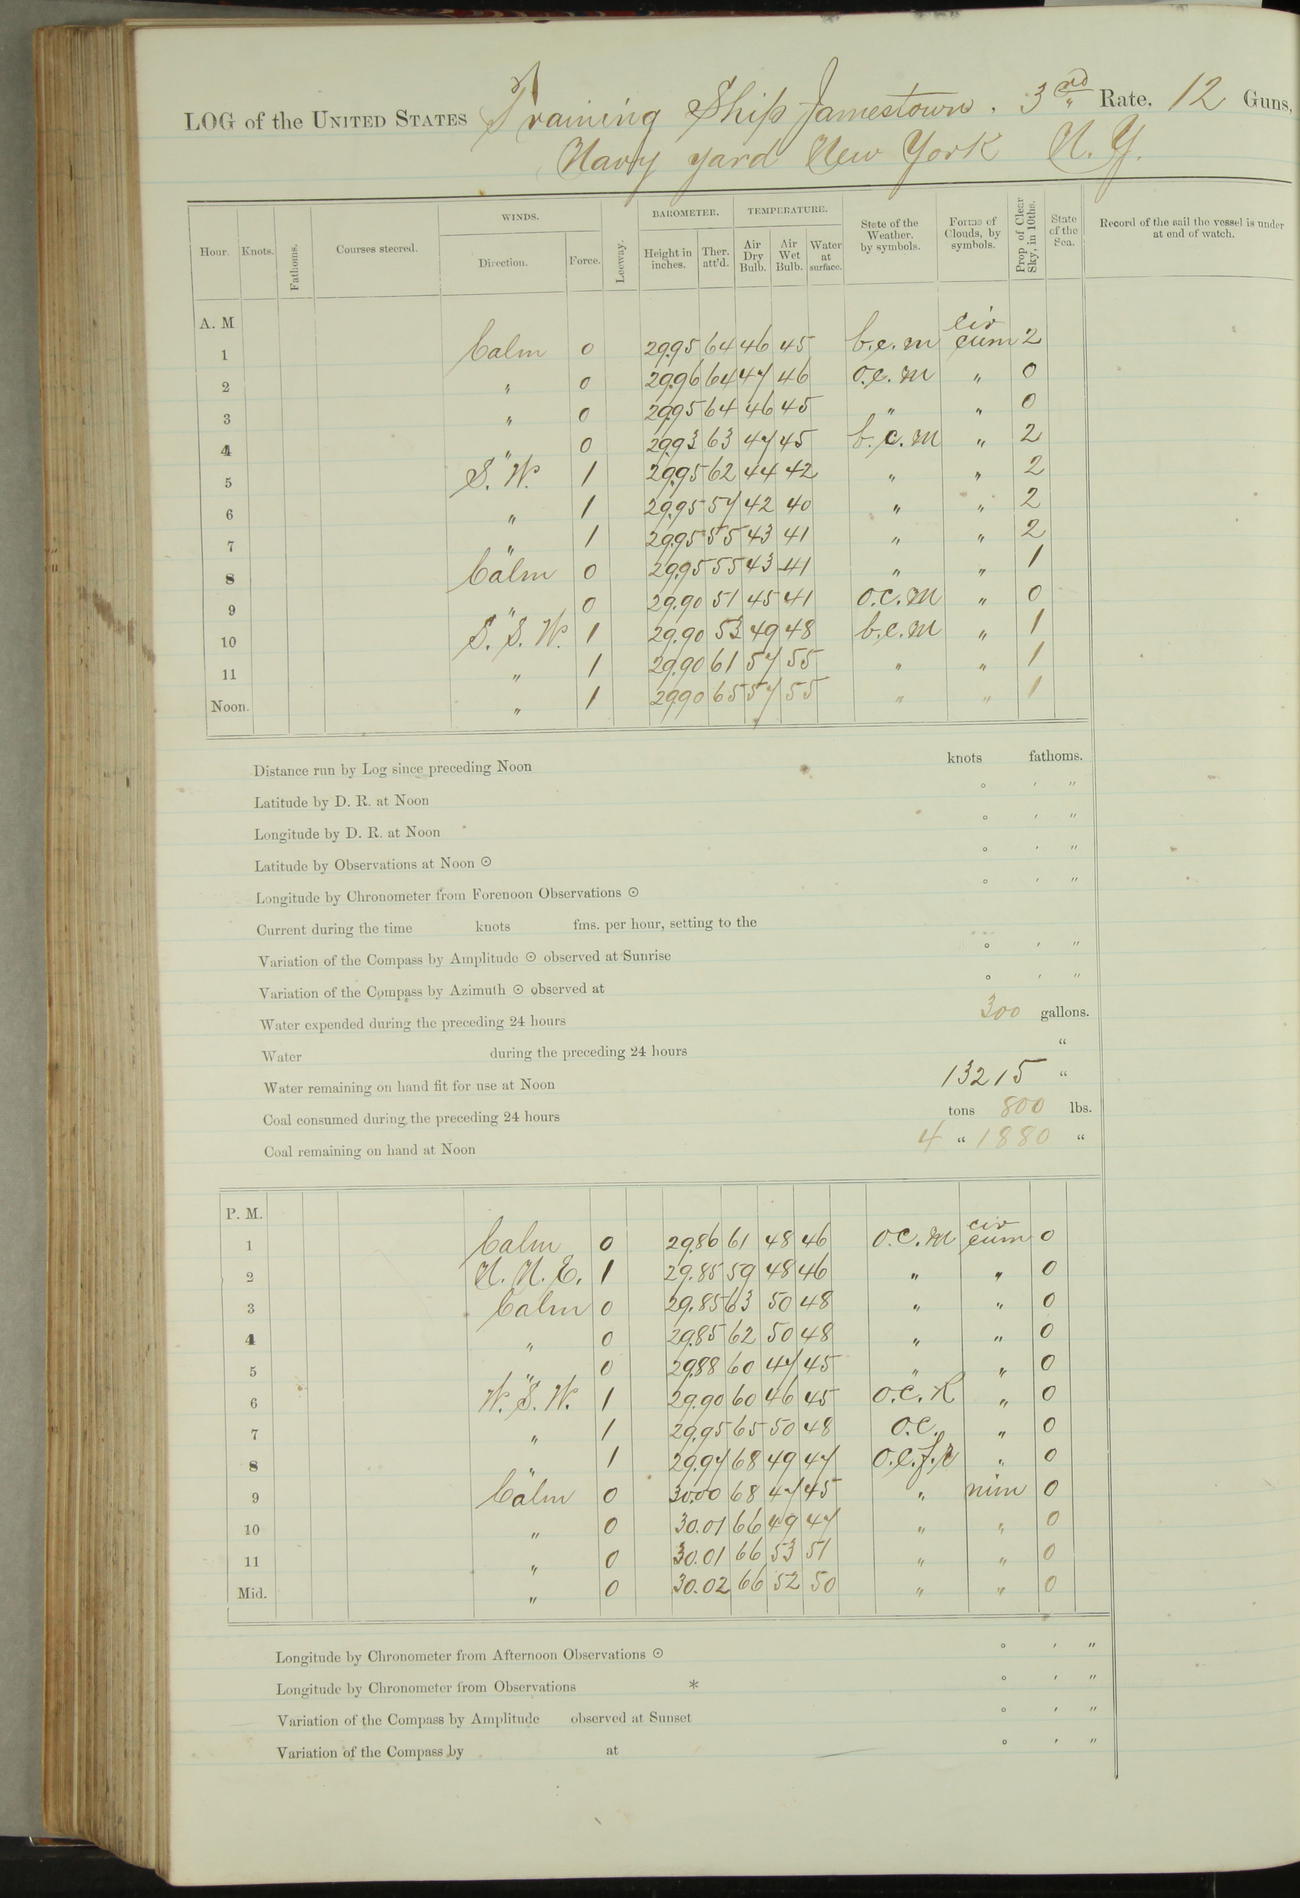 LOG of the UNITED STATES Training Ship Jamestown. 3rd Rate, 12 Guns,
Navy Yard New York N.Y.
WINDS. BAROMETER. TEMPERATURE.
Hour. Knots. Fathoms. Courses steered. Direction. Force. Leeway. Height in inches. Ther. att'd. Air Dry Bulb. Air Wet Bulb. Water at surface. State of the Weather, by symbols. Forms of Clouds, by symbols. Prop. of Clear Sky, in 10ths. State of the Sea. Record of the sail the vessel is under at end of watch.
A. M
1 Calm 0 29.95 64 46 45 b.c.m cir cum 2
2 " 0 29.96 64 47 46 o.c.m " 0
3 " 0 29.95 64 46 45 " " 0
4 " 0 29.93 63 47 45 b.c.m " 2
5 S.W. 1 29.95 62 44 42 " " 2
6 " 1 29.95 57 42 40 " " 2
7 " 1 29.95 55 43 41 " " 2
8 Calm 0 29.95 55 43 41 " " 1
9 " 0 29.90 51 45 41 o.c.m " 0
10 S.S.W. 1 29.90 53 49 48 b.c.m " 1
11 " 1 29.90 61 57 55 " " 1
Noon. " 1 29.90 65 57 55 " " 1
Distance run by Log since preceding Noon knots fathoms.
Latitude by D. R. at Noon ° ' "
Longitude by D. R. at Noon ° ' "
Latitude by Observations at Noon ☉ ° ' "
Longitude by Chronometer from Forenoon Observations ☉ ° ' "
Current during the time knots fms. per hour, setting to the
Variation of the Compass by Amplitude ☉ observed at Sunrise ° ' "
Variation of the Compass by Azimuth ☉ observed at ° ' "
Water expended during the preceding 24 hours 300 gallons.
Water during the preceding 24 hours "
Water remaining on hand fit for use at Noon 13215 "
Coal consumed during the preceding 24 hours tons 800 lbs.
Coal remaining on hand at Noon 4 " 1880 "
P. M.
1 Calm 0 29.86 61 48 46 o.c.m cir cum 0
2 N.N.E. 1 29.85 59 48 46 " " 0
3 Calm 0 29.85 63 50 48 " " 0
4 " 0 29.85 62 50 48 " " 0
5 " 0 29.88 60 47 45 " " 0
6 W.S.W. 1 29.90 60 46 45 o.c.R " 0
7 " 1 29.95 65 50 48 o.c. " 0
8 " 1 29.97 68 49 47 o.c.f.r " 0
9 Calm 0 30.00 68 47 45 " nim 0
10 " 0 30.01 66 49 47 " " 0
11 " 0 30.01 66 53 51 " " 0
Mid. " 0 30.02 66 52 50 " " 0
Longitude by Chronometer from Afternoon Observations ☉ ° ' "
Longitude by Chronometer from Observations * ° ' "
Variation of the Compass by Amplitude observed at Sunset ° ' "
Variation of the Compass by at ° ' "